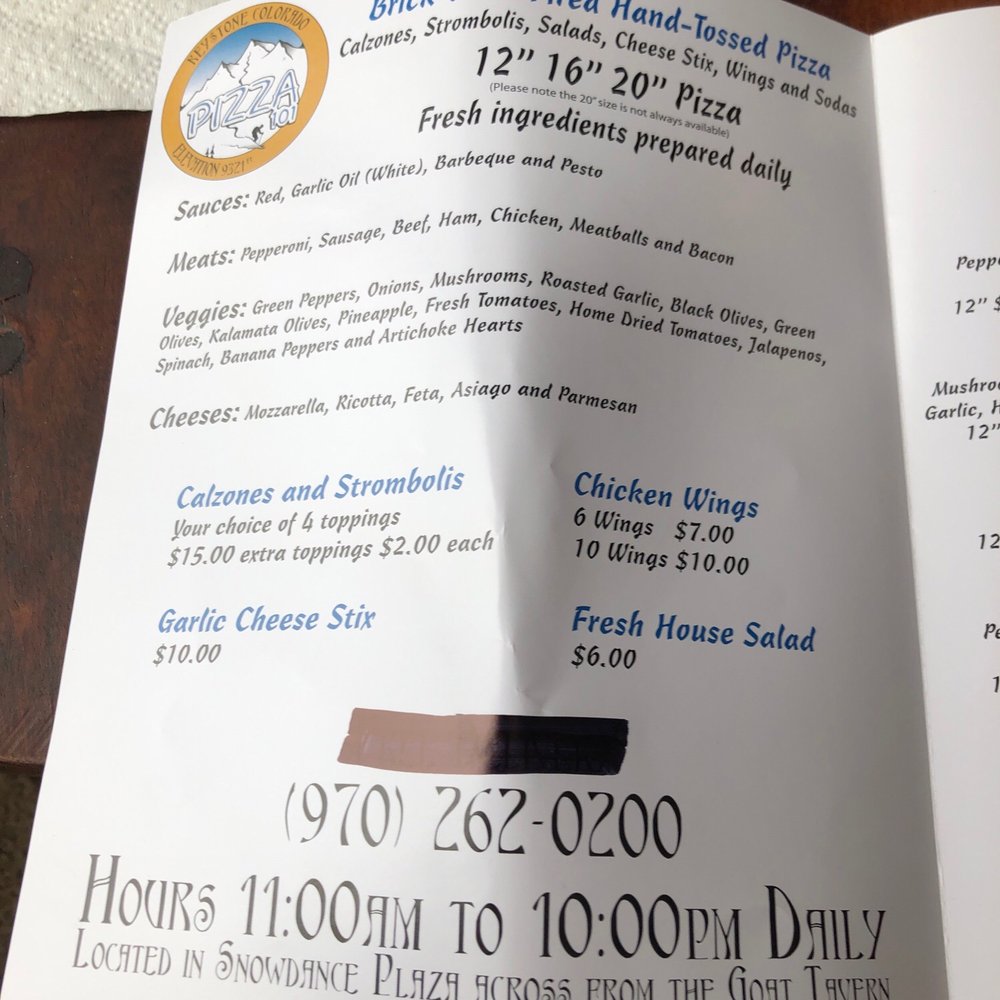 KEYSTONE COLORADO
PIZZA
101
ELEVATION 9321'
Brick Hand-Tossed Pizza
Calzones, Strombolis, Salads, Cheese Stix, Wings and Sodas
12” 16” 20” Pizza
(Please note the 20” size is not always available)
Fresh ingredients prepared daily
Sauces: Red, Garlic Oil (White), Barbeque and Pesto
Meats: Pepperoni, Sausage, Beef, Ham, Chicken, Meatballs and Bacon
Veggies: Green Peppers, Onions, Mushrooms, Roasted Garlic, Black Olives, Green
Olives, Kalamata Olives, Pineapple, Fresh Tomatoes, Home Dried Tomatoes, Jalapenos,
Spinach, Banana Peppers and Artichoke Hearts
Cheeses: Mozzarella, Ricotta, Feta, Asiago and Parmesan
Calzones and Strombolis
Your choice of 4 toppings
$15.00 extra toppings $2.00 each
Chicken Wings
6 Wings $7.00
10 Wings $10.00
Garlic Cheese Stix
$10.00
Fresh House Salad
$6.00
(970) 262-0200
Hours 11:00am to 10:00pm Daily
Located in Snowdance Plaza across from the Goat Tavern
12” $
Garlic,
12”